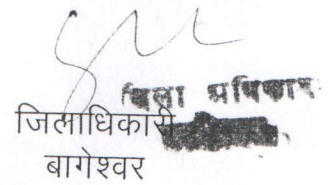 जिला अधिकारी
जिलाधिकारी
बागेश्वर